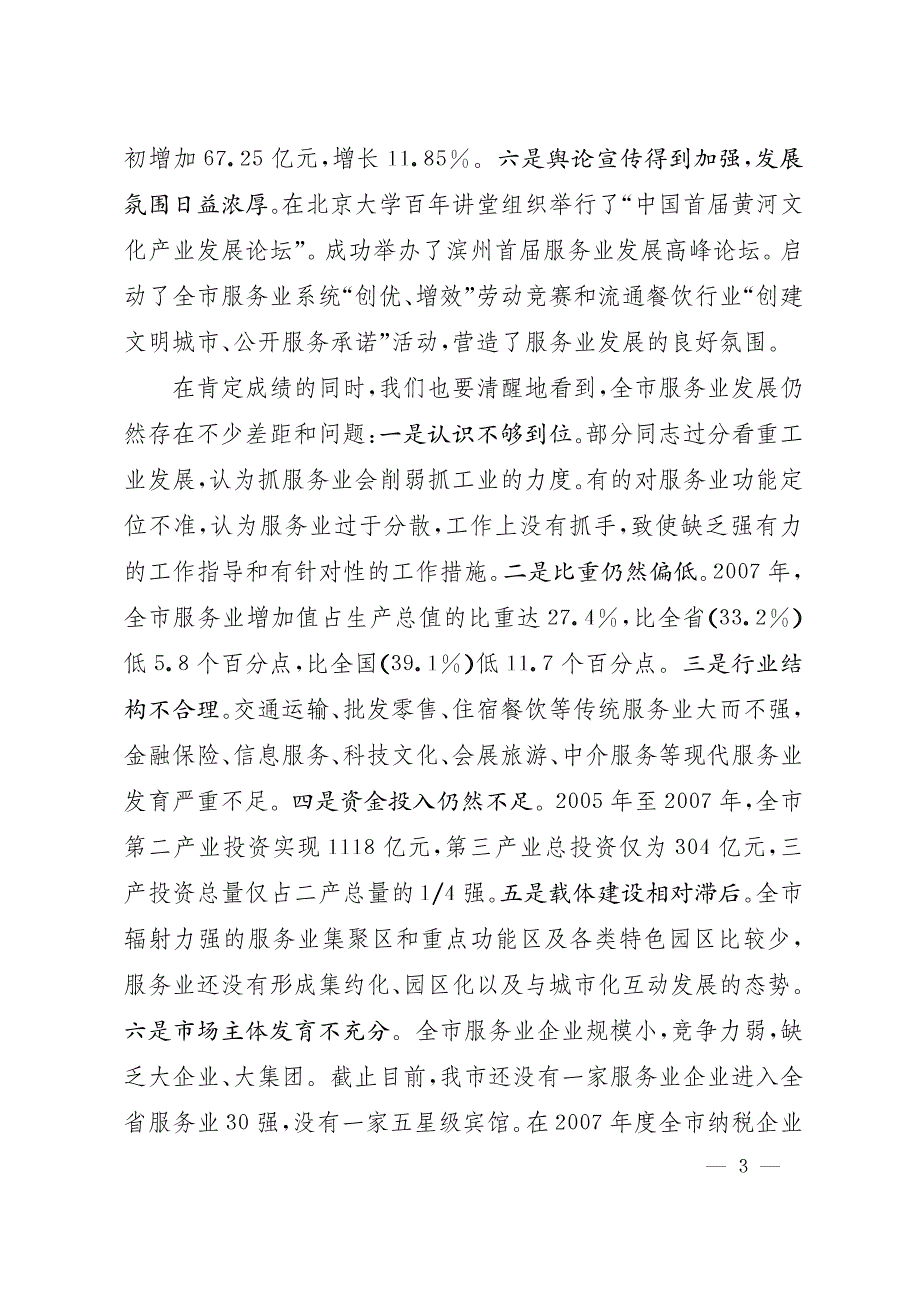 初增加 67.25 亿元,增长 11.85%。六是舆论宣传得到加强,发展
氛围日益浓厚。在北京大学百年讲堂组织举行了“中国首届黄河文
化产业发展论坛”。成功举办了滨州首届服务业发展高峰论坛。启
动了全市服务业系统“创优、增效”劳动竞赛和流通餐饮行业“创建
文明城市、公开服务承诺”活动,营造了服务业发展的良好氛围。
在肯定成绩的同时,我们也要清醒地看到,全市服务业发展仍
然存在不少差距和问题:一是认识不够到位。部分同志过分看重工
业发展,认为抓服务业会削弱抓工业的力度。有的对服务业功能定
位不准,认为服务业过于分散,工作上没有抓手,致使缺乏强有力
的工作指导和有针对性的工作措施。二是比重仍然偏低。2007 年,
全市服务业增加值占生产总值的比重达 27.4%,比全省(33.2%)
低 5.8 个百分点,比全国(39.1%)低 11.7 个百分点。三是行业结
构不合理。交通运输、批发零售、住宿餐饮等传统服务业大而不强,
金融保险、信息服务、科技文化、会展旅游、中介服务等现代服务业
发育严重不足。四是资金投入仍然不足。2005 年至 2007 年,全市
第二产业投资实现 1118 亿元,第三产业总投资仅为 304 亿元,三
产投资总量仅占二产总量的 1/4 强。五是载体建设相对滞后。全市
辐射力强的服务业集聚区和重点功能区及各类特色园区比较少,
服务业还没有形成集约化、园区化以及与城市化互动发展的态势。
六是市场主体发育不充分。全市服务业企业规模小,竞争力弱,缺
乏大企业、大集团。截止目前,我市还没有一家服务业企业进入全
省服务业 30 强,没有一家五星级宾馆。在 2007 年度全市纳税企业
— 3 —